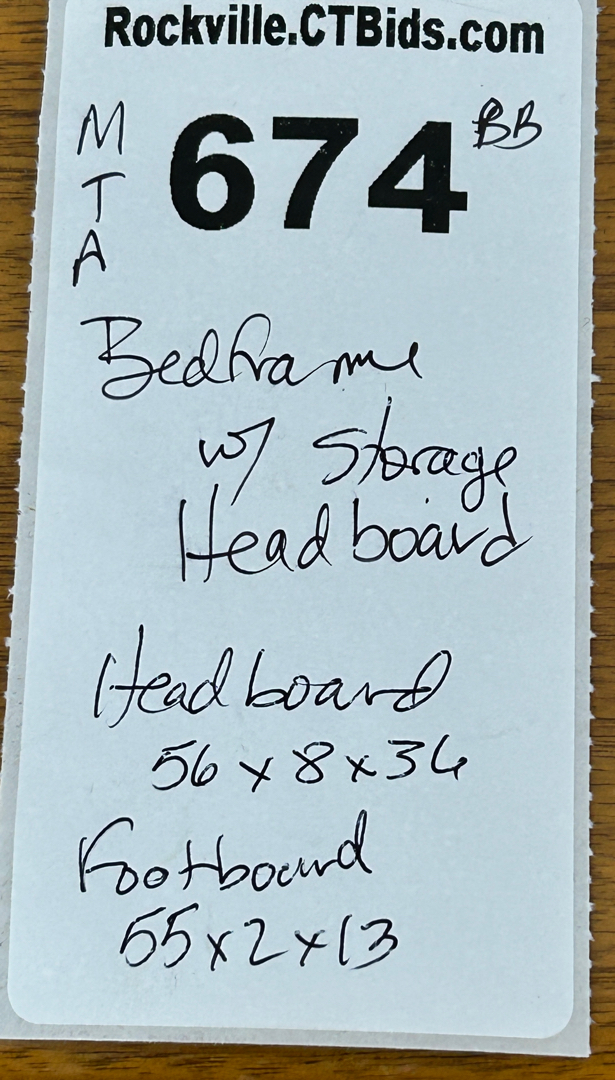 Rockville.CTBids.com
M
T
A
674
BB
Bedframe
w/ Storage
Headboard
Headboard
56 x 8 x 36
Footboard
55 x 2 x 13